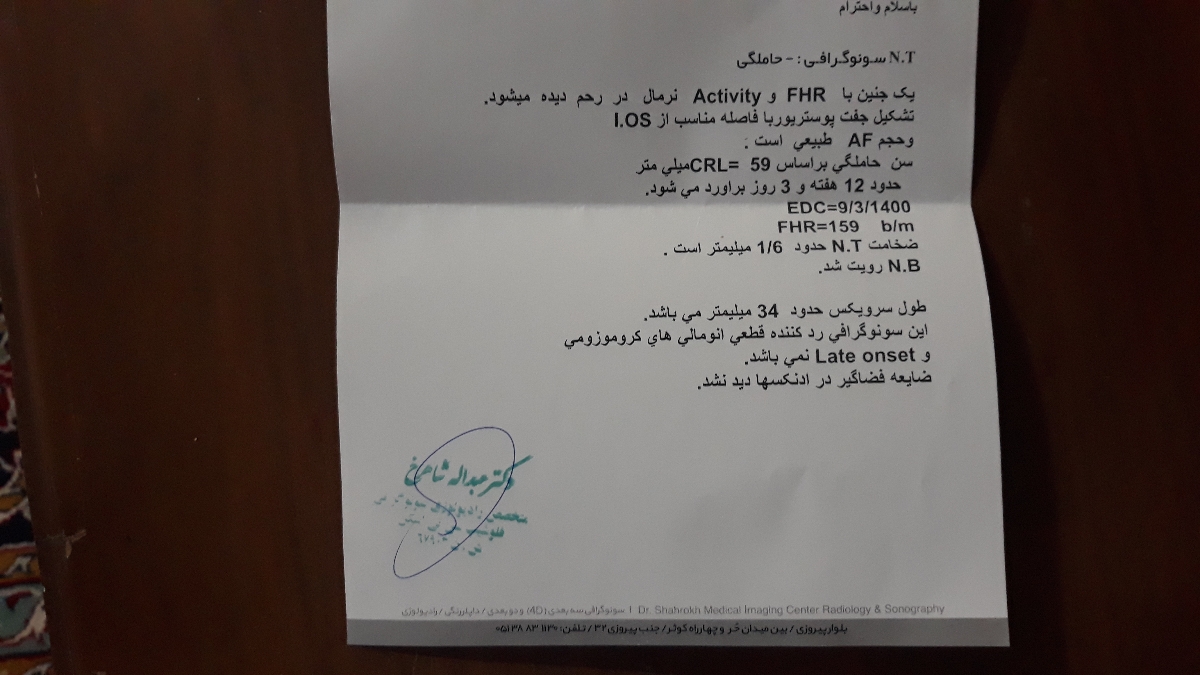 باسلام واحترام
N.T سونوگرافی : - حاملگی
یک جنین با FHR و Activity نرمال در رحم دیده میشود.
تشکیل جفت پوستریوربا فاصله مناسب از I.OS
وحجم AF طبیعي است :
سن حاملگي براساس CRL= 59میلي متر
حدود 12 هفته و 3 روز براورد مي شود.
EDC=9/3/1400
FHR=159 b/m
ضخامت N.T حدود 1/6 میلیمتر است .
N.B رویت شد.
طول سرویکس حدود 34 میلیمتر مي باشد.
این سونوگرافي رد کننده قطعي انومالي هاي کروموزومي
و Late onset نمي باشد.
ضایعه فضاگیر در ادنکسها دید نشد.
دکتر عبداله شاهرخ
متخصص رادیولوژی سونوگرافی
سونوگرافی سه بعدی (4D) و دو بعدی / داپلررنگی / رادیولوژی | Dr. Shahrokh Medical Imaging Center Radiology & Sonography
بلوارپیروزی / بین میدان حُر و چهارراه کوثر / جنب پیروزی ۳۲ / تلفن: ۰۵۱۳۸ ۸۳ ۱۱۳۰